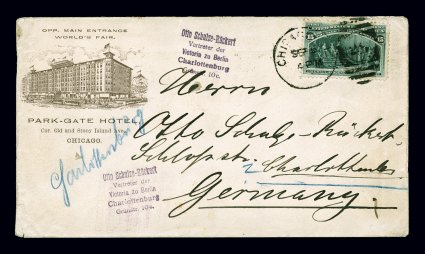 OPP. MAIN ENTRANCE
WORLD'S FAIR.
PARK-GATE HOTEL,
Cor. 63d and Stony Island Ave.
CHICAGO.
Otto Schulze-Rückert
Vertreter der
Victoria zu Berlin
Charlottenburg
10c.
CHICAGO
Herrn
Otto Schulze-Rückert
Schlossstr. 2 Charlottenburg
Germany
Charlottenburg
Otto Schulze-Rückert
Vertreter der
Victoria zu Berlin
Charlottenburg
10c.